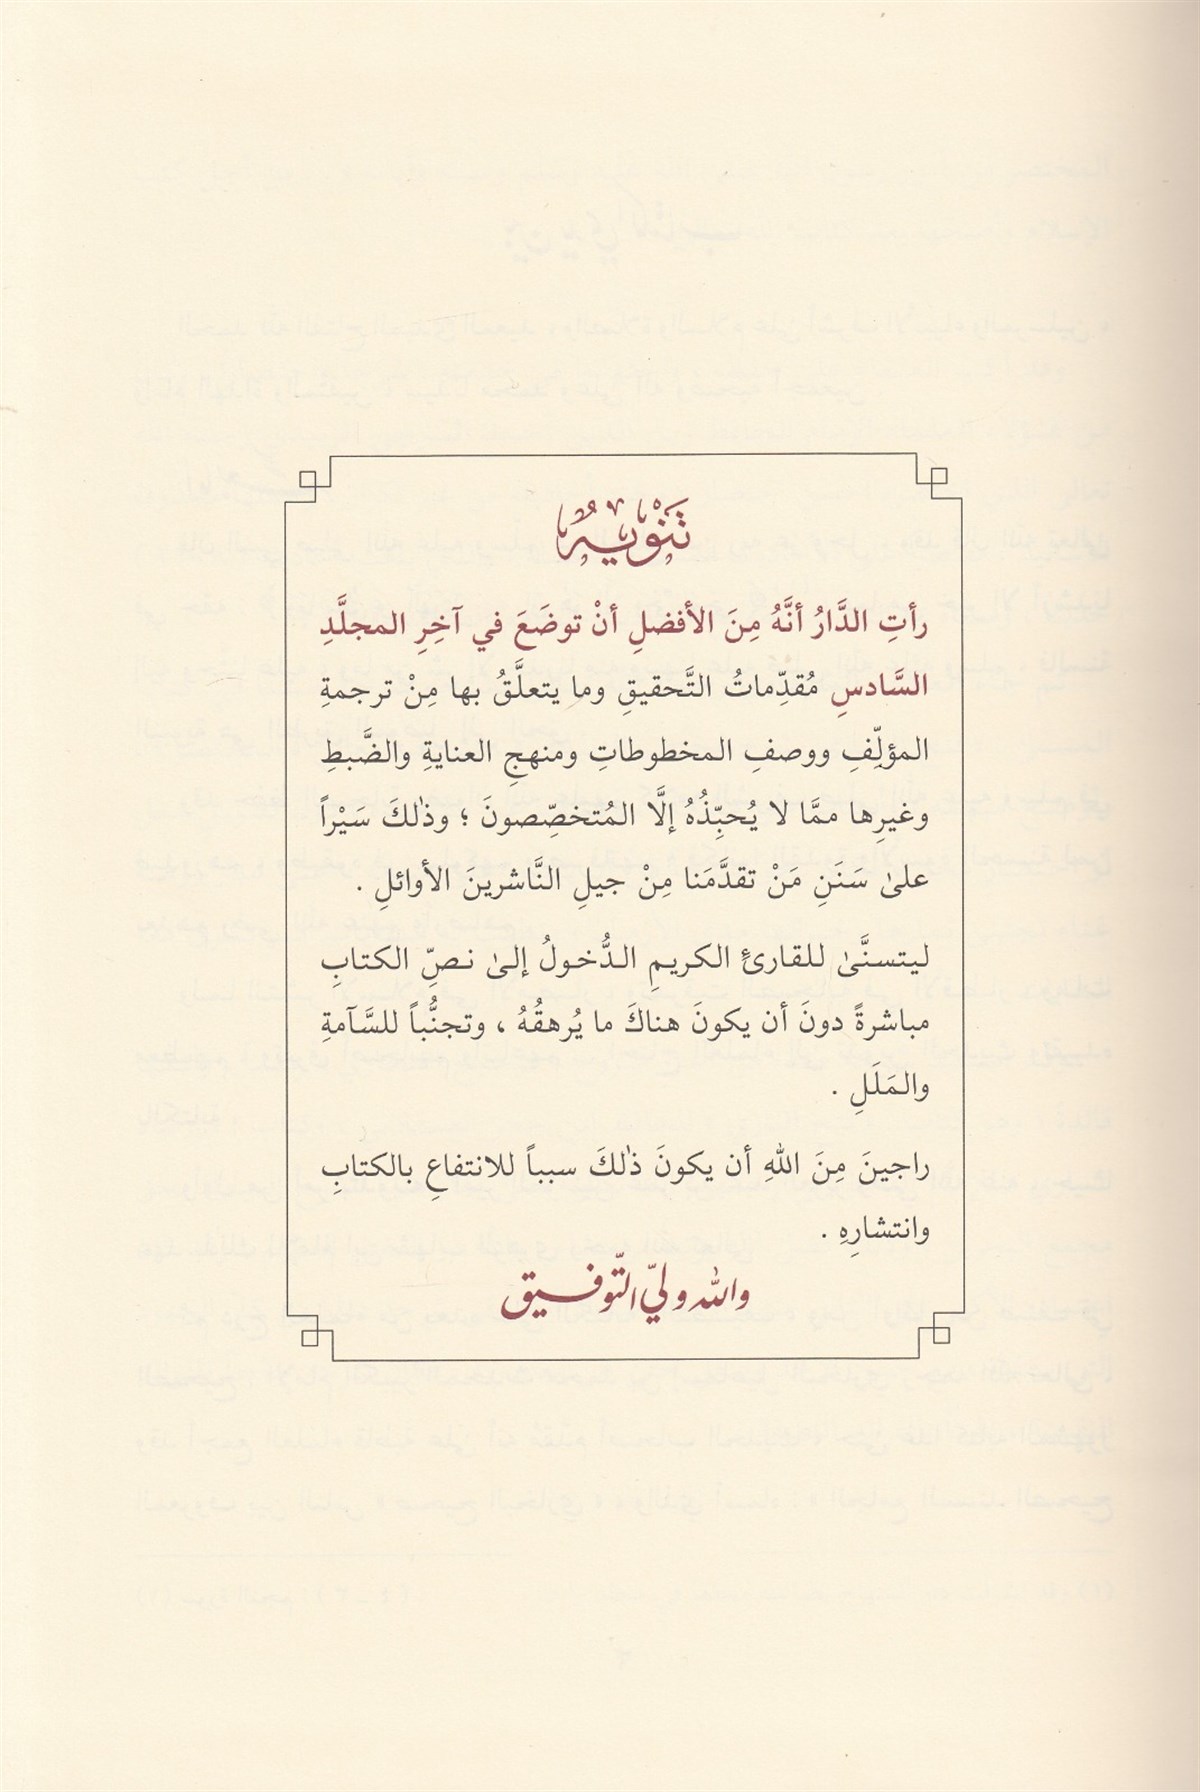 تَنْوِيهٌ
رأتِ الدَّارُ أنَّهُ مِنَ الأفضلِ أنْ توضَعَ في آخِرِ المجلَّدِ
السَّادسِ مُقدِّماتُ التَّحقيقِ وما يتعلَّقُ بها مِنْ ترجمةِ
المؤلِّفِ ووصفِ المخطوطاتِ ومنهجِ العنايةِ والضَّبطِ
وغيرِها ممَّا لا يُحبِّذُهُ إلَّا المُتخصِّصونَ ؛ وذٰلكَ سَيْراً
علىٰ سَنَنِ مَنْ تقدَّمَنا مِنْ جيلِ النَّاشرينَ الأوائلِ .
ليتسنَّىٰ للقارئِ الكريمِ الدُّخولُ إلىٰ نصِّ الكتابِ
مباشرةً دونَ أن يكونَ هناكَ ما يُرهقُهُ ، وتجنُّباً للسَّآمةِ
والمَلَلِ .
راجينَ مِنَ اللهِ أن يكونَ ذٰلكَ سبباً للانتفاعِ بالكتابِ
وانتشارِهِ .
والله وليّ التّوفيق